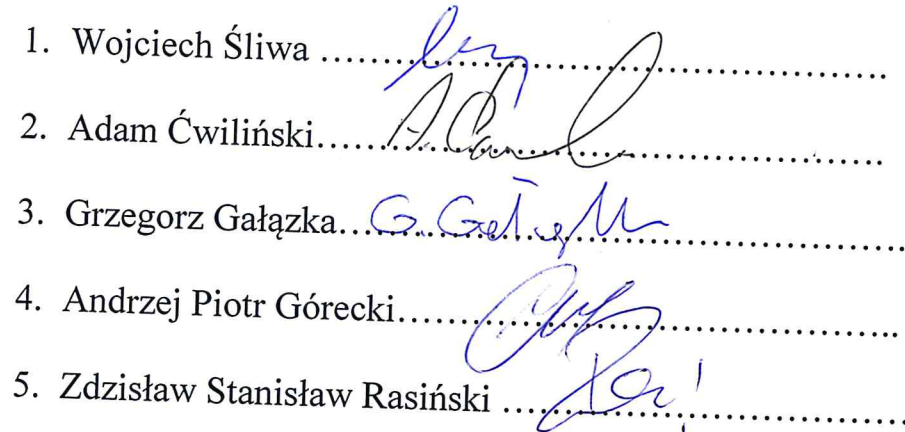 1. Wojciech Śliwa ..........................................................
2. Adam Ćwiliński..........................................................
3. Grzegorz Gałązka... G. Gałązka ..................................
4. Andrzej Piotr Górecki..................................................
5. Zdzisław Stanisław Rasiński ..........................................